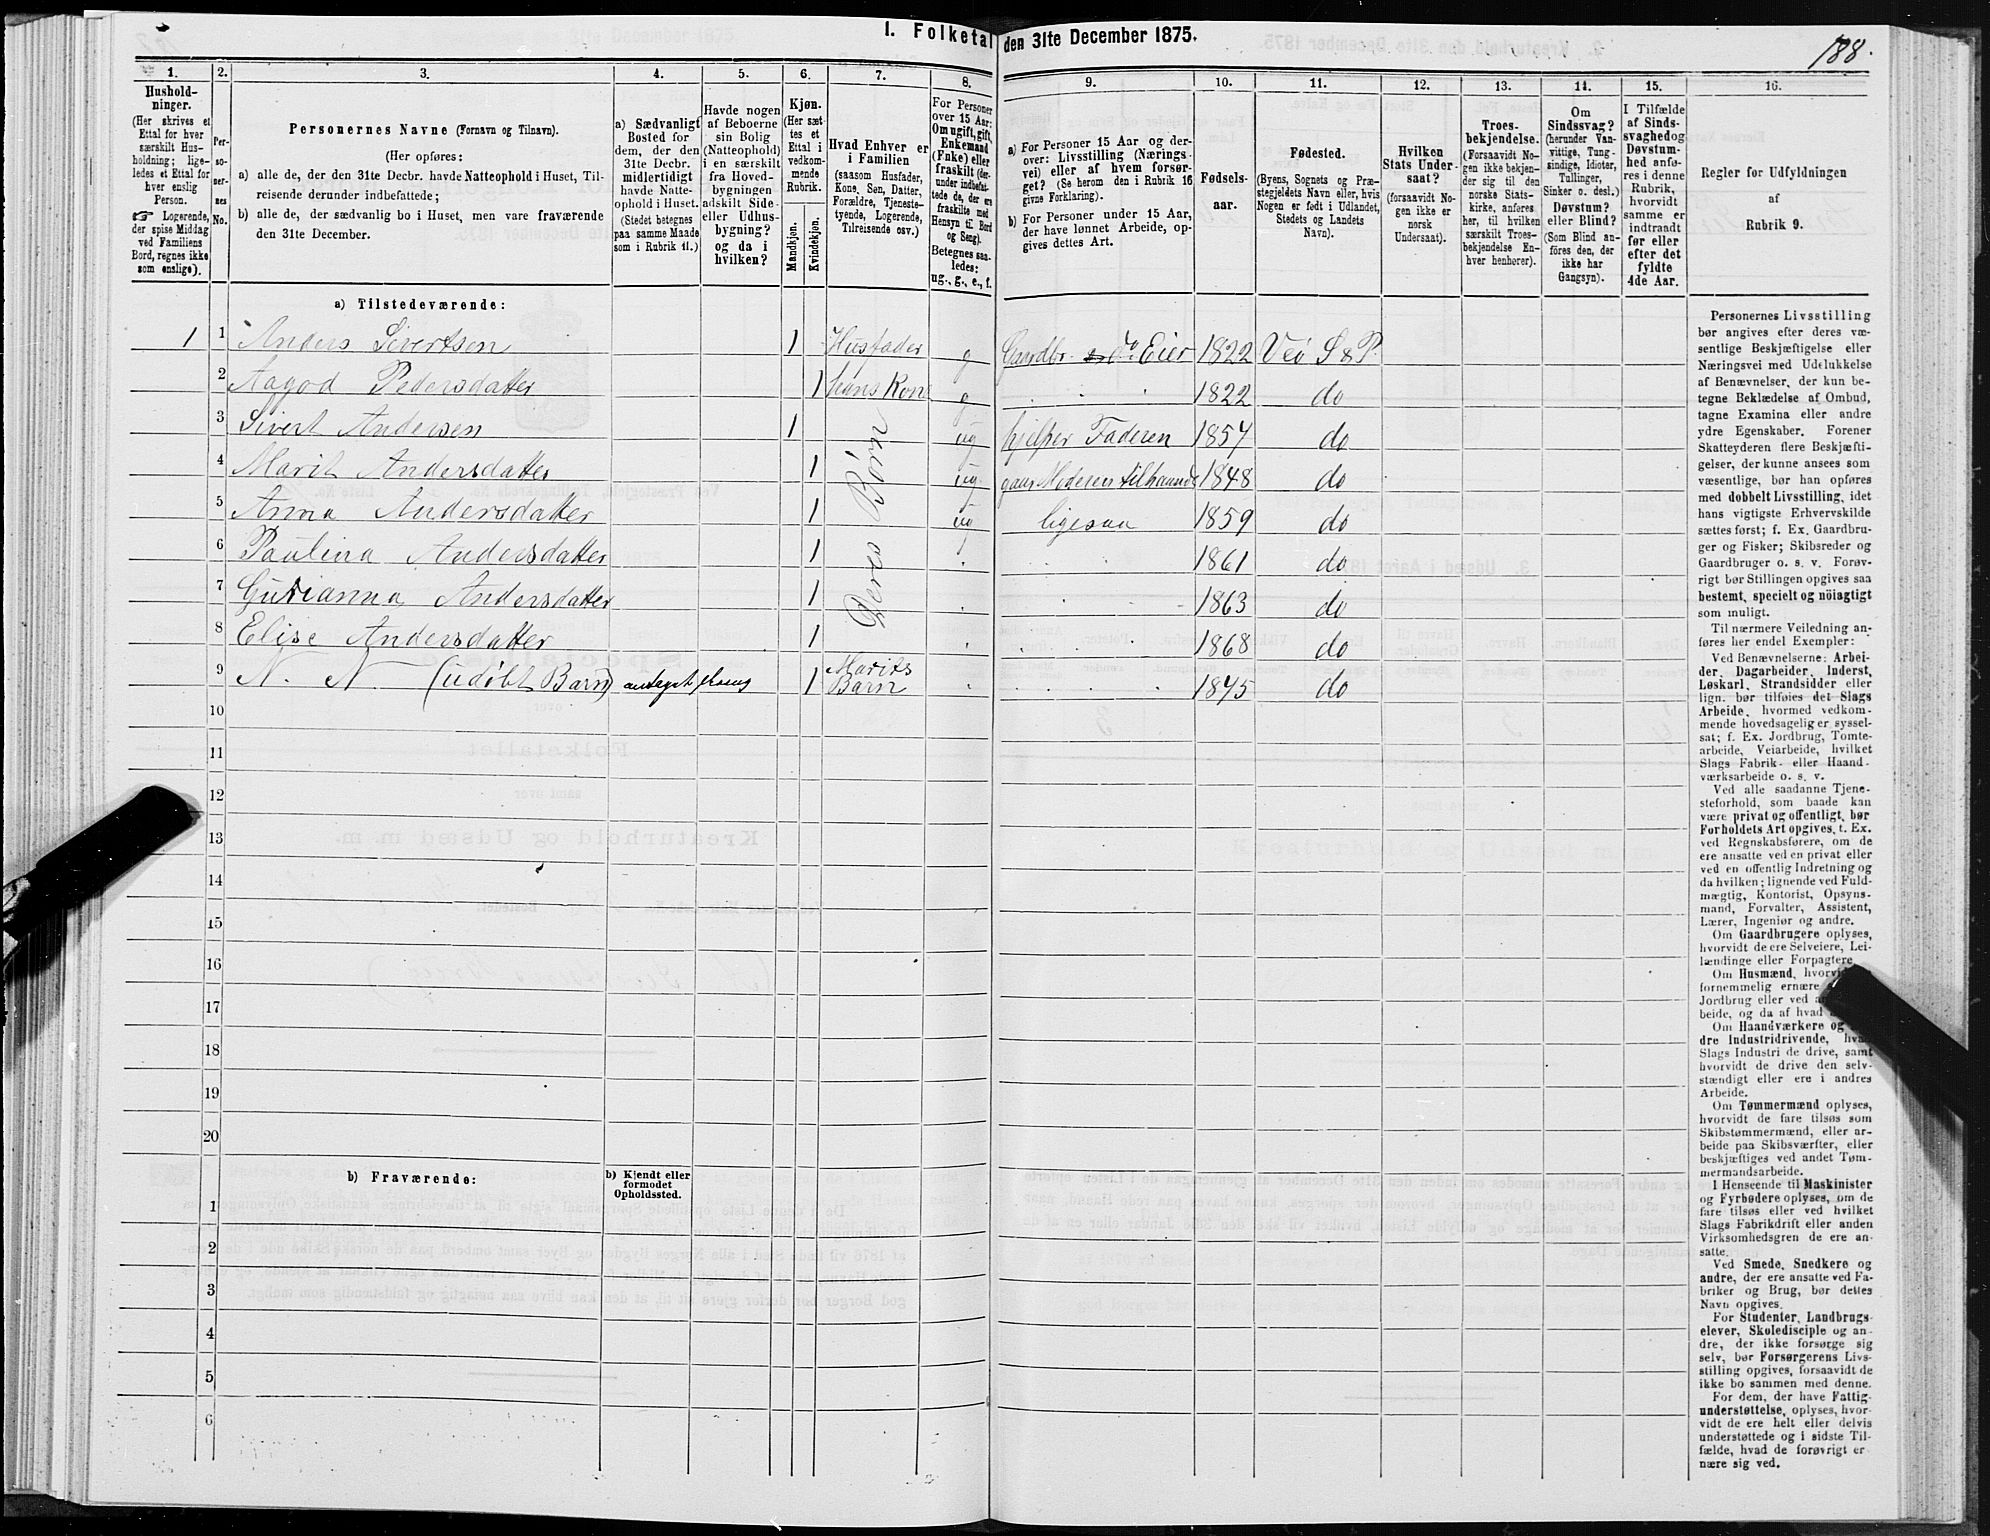 I. Folketal den 31te December 1875.
188.
1.
Hushold-
ninger.
(Her skrives et
Ettal for hver
særskilt Hus-
holdning; lige-
ledes et Ettal for
hver enslig
Person.
☞ Logerende,
der spise Middag
ved Familiens
Bord, regnes ikke
som enslige).
2.
Per-
so-
ner-
nes
No.
3.
Personernes Navne (Fornavn og Tilnavn).
(Her opføres:
a) alle de, der den 31te Decbr. havde Natteophold i Huset, Til-
reisende derunder indbefattede;
b) alle de, der sædvanlig bo i Huset, men vare fraværende
den 31te December.
4.
a) Sædvanligt
Bosted for
dem, der den
31te Decbr.
midlertidigt
havde Natte-
ophold i Huset.
(Stedet betegnes
paa samme Maade
som i Rubrik 11.)
5.
Havde nogen
af Beboerne
sin Bolig
(Natteophold)
i en særskilt
fra Hoved-
bygningen
adskilt Side-
eller Udhus-
bygning?
og da i
hvilken?
6.
Kjøn.
(Her sæt-
tes et
Ettal i
vedkom-
mende
Rubrik.
Mandkjøn.
Kvindekjøn.
7.
Hvad Enhver er
i Familien
(saasom Husfader,
Kone, Søn, Datter,
Forældre, Tjeneste-
tyende, Logerende,
Tilreisende osv.)
8.
For Personer
over 15 Aar:
Om ugift, gift,
Enkemand
(Enke) eller
fraskilt (der-
under indbefat-
tede de, der ere
fraskilte med
Hensyn til Bord
og Seng).
Betegnes saa-
ledes:
ug., g., e., f.
9.
a) For Personer 15 Aar og der-
over: Livsstilling (Nærings-
vei) eller af hvem forsør-
get? (Se herom den i Rubrik 16
givne Forklaring).
b) For Personer under 15 Aar,
der have lønnet Arbeide, op-
gives dettes Art.
10.
Fødsels-
aar.
11.
Fødested.
(Byens, Sognets og Præ-
stegjeldets Navn eller, hvis
Nogen er født i Udlandet,
Stedets og Landets
Navn).
12.
Hvilken
Stats Under-
saat?
(forsaavidt No-
gen ikke er
norsk
Undersaat).
13.
Troes-
bekjendelse.
(Forsaavidt No-
gen ikke bekjen-
der sig til den
norske Stats-
kirke, anføres
her, til hvilken
særskilt Troes-
bekjendelse En-
hver henhører).
14.
Om
Sindssvag?
(herunder Van-
vittige, Tung-
sindige, Idioter,
Tullinger,
Sinker o. desl.)
Døvstum?
eller Blind?
(Som Blind an-
føres den, der
ikke har
Gangsyn).
15.
I Tilfælde
af Sinds-
svaghed og
Døvstum-
hed anfø-
res i denne
Rubrik,
hvorvidt
samme er
indtraadt
før eller
efter det
fyldte
4de Aar.
16.
Regler for Udfyldningen
af
Rubrik 9.
a) Tilstedeværende:
1 1 Anders Sivertsen 1 Husfader g Gaardbr. do Eier 1822 Veø S & P.
2 Aagod Pedersdatter 1 hans Kone g 1822 do
3 Sivert Andersen 1 ug hjelper Faderen 1857 do
4 Marit Andersdatter 1 ug gaar Moderen tilhaande 1848 do
5 Anna Andersdatter 1 ug ligesaa 1859 do
6 Paulina Andersdatter 1 1861 do
7 Gurianna Andersdatter 1 1863 do
8 Elise Andersdatter 1 1868 do
Deres Børn
9 N. N. (udøbt Barn) 1 Marits Barn 1875 do
10
11
12
13
14
15
16
17
18
19
20
b) Fraværende:
b) Kjendt eller
formodet
Opholdssted.
1
2
3
4
5
6
Personernes Livsstilling
bør angives efter deres væ-
sentlige Beskjæftigelse eller
Næringsvei med Udelukkelse
af Benævnelser, der kun be-
tegne Beklædelse af Ombud,
tagne Examina eller andre
ydre Egenskaber. Forener
Skatteyderen flere Beskjæfti-
gelser, der kunne ansees som
væsentlige, bør han opføres
med dobbelt Livsstilling, idet
hans vigtigste Erhvervskilde
sættes først; f. Ex. Gaardbru-
ger og Fisker; Skibsreder og
Gaardbruger o. s. v. Forøv-
rigt bør Stillingen opgives saa
bestemt, specielt og nøiagtigt
som muligt.
Til nærmere Veiledning an-
føres her endel Exempler:
Ved Benævnelserne: Arbei-
der, Dagarbeider, Inderst,
Løskarl, Strandsidder eller
lign. bør tilføies det Slags
Arbeide, hvormed vedkom-
mende hovedsagelig er syssel-
sat; f. Ex. Jordbrug, Tomte-
arbeide, Veiarbeide, hvilket
Slags Fabrik- eller Haand-
værksarbeide o. s. v.
Ved alle saadanne Tjene-
steforhold, som baade kan
være privat og offentligt, bør
Forholdets Art opgives, t. Ex.
ved Regnskabsførere, om de
ere ansatte ved en privat eller
ved en offentlig Indretning og
da hvilken; lignende ved Fuld-
mægtig, Kontorist, Opsyns-
mand, Forvalter, Assistent,
Lærer, Ingeniør og andre.
Om Gaardbrugere oplyses,
hvorvidt de ere Selveiere, Lei-
lændinge eller Forpagtere.
Om Husmænd, hvorvidt
fornemmelig ernære
Jordbrug eller ved
beide, og da af hvad
Om Haandværkere og
dre Industridrivende, hvad
Slags Industri de drive, samt
hvorvidt de drive den selv-
stændigt eller ere i andres
Arbeide.
Om Tømmermænd oplyses,
hvorvidt de fare tilsøs som
Skibstømmermænd, eller ar-
beide paa Skibsværfter, eller
beskjæftiges ved andet Tøm-
mermandsarbeide.
I Henseende til Maskinister
og Fyrbødere oplyses, om de
fare tilsøs eller ved hvilket
Slags Fabrikdrift eller anden
Virksomhedsgren de ere an-
satte.
Ved Smede, Snedkere og
andre, der ere ansatte ved Fa-
briker og Brug, bør dettes
Navn opgives.
For Studenter, Landbrugs-
elever, Skoledisciple og an-
dre, der ikke forsørge sig
selv, bør Forsørgerens Livs-
stilling opgives, forsaavidt de
ikke bo sammen med denne.
For dem, der have Fattig-
understøttelse, oplyses, hvor-
vidt de ere helt eller delvis
understøttede og i sidste Til-
fælde, hvad de forøvrigt er-
nære sig ved.